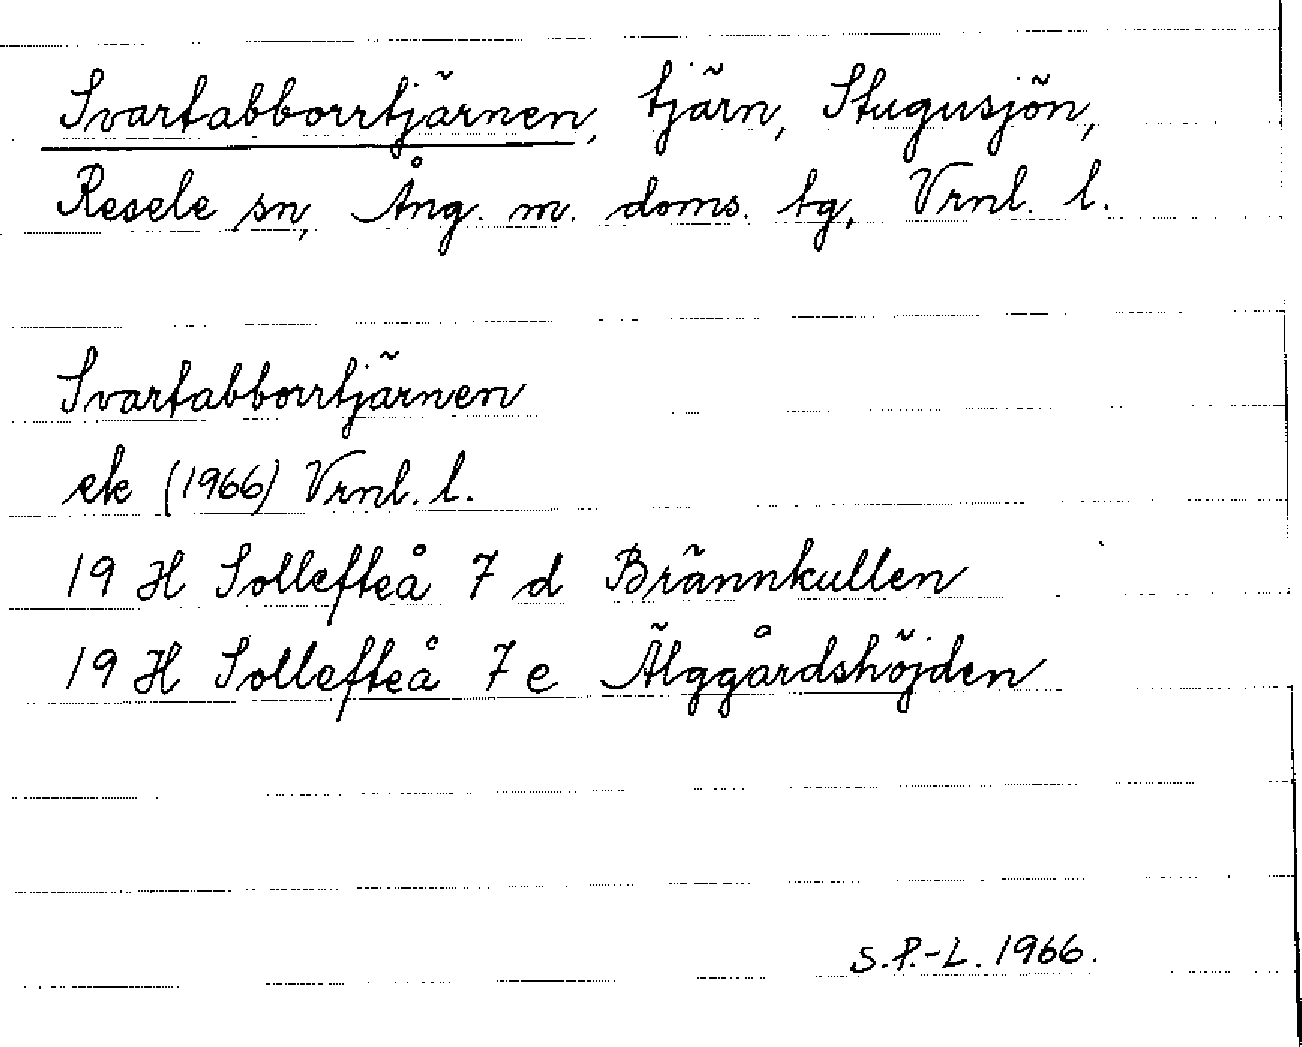 Svartabborrtjärnen, tjärn, Stugusjön,
Resele sn, Ång. m. doms. tg, Vrnl. l.
Svartabborrtjärnen
ek (1966) Vrnl. l.
19 H Sollefteå 7 d Brännkullen
19 H Sollefteå 7 e Älggårdshöjden
S.P.-L. 1966.